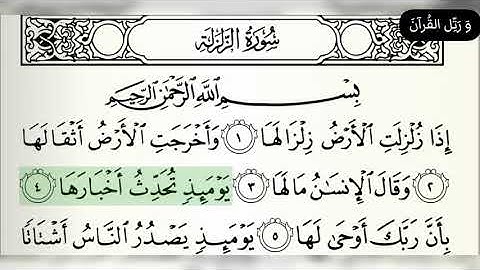 وَ رَتِّلِ القُرآنَ
سُورَةُ الزَّلْزَلَة
بِسْمِ اللَّهِ الرَّحْمَٰنِ الرَّحِيمِ
إِذَا زُلْزِلَتِ ٱلْأَرْضُ زِلْزَالَهَا ١ وَأَخْرَجَتِ ٱلْأَرْضُ أَثْقَالَهَا
٢ وَقَالَ ٱلْإِنسَٰنُ مَا لَهَا ٣ يَوْمَئِذٍ تُحَدِّثُ أَخْبَارَهَا ٤
بِأَنَّ رَبَّكَ أَوْحَىٰ لَهَا ٥ يَوْمَئِذٍ يَصْدُرُ ٱلنَّاسُ أَشْتَاتًا